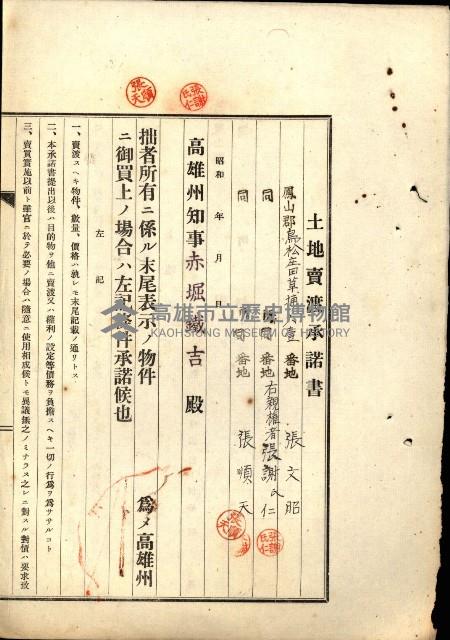 土地賣渡承諾書
鳳山郡鳥松庄田草埔壹番地
張文昭
同 同 番地右親權者張謝氏仁
同 同 番地 張順天
昭和 年 月 日
高雄州知事赤堀鐵吉殿
拙者所有ニ係ル末尾表示ノ物件 為メ高雄州
ニ御買上ノ場合ハ左記條件承諾候也
左記
一、賣渡スヘキ物件、數量、價格ハ孰レモ末尾記載ノ通リトス
二、本承諾書提出以後ハ目的物ヲ他ニ賣渡又ハ權利ノ設定等債務ヲ負擔スヘキ一切ノ行爲ヲ爲サルコト
三、賣買實施以前ト雖官ニ於テ必要ノ場合ハ隨意ニ使用相成候トモ異議無之ノミナラス之レニ對スル對價ハ要求致
高雄市立歷史博物館
KAOHSIUNG MUSEUM OF HISTORY